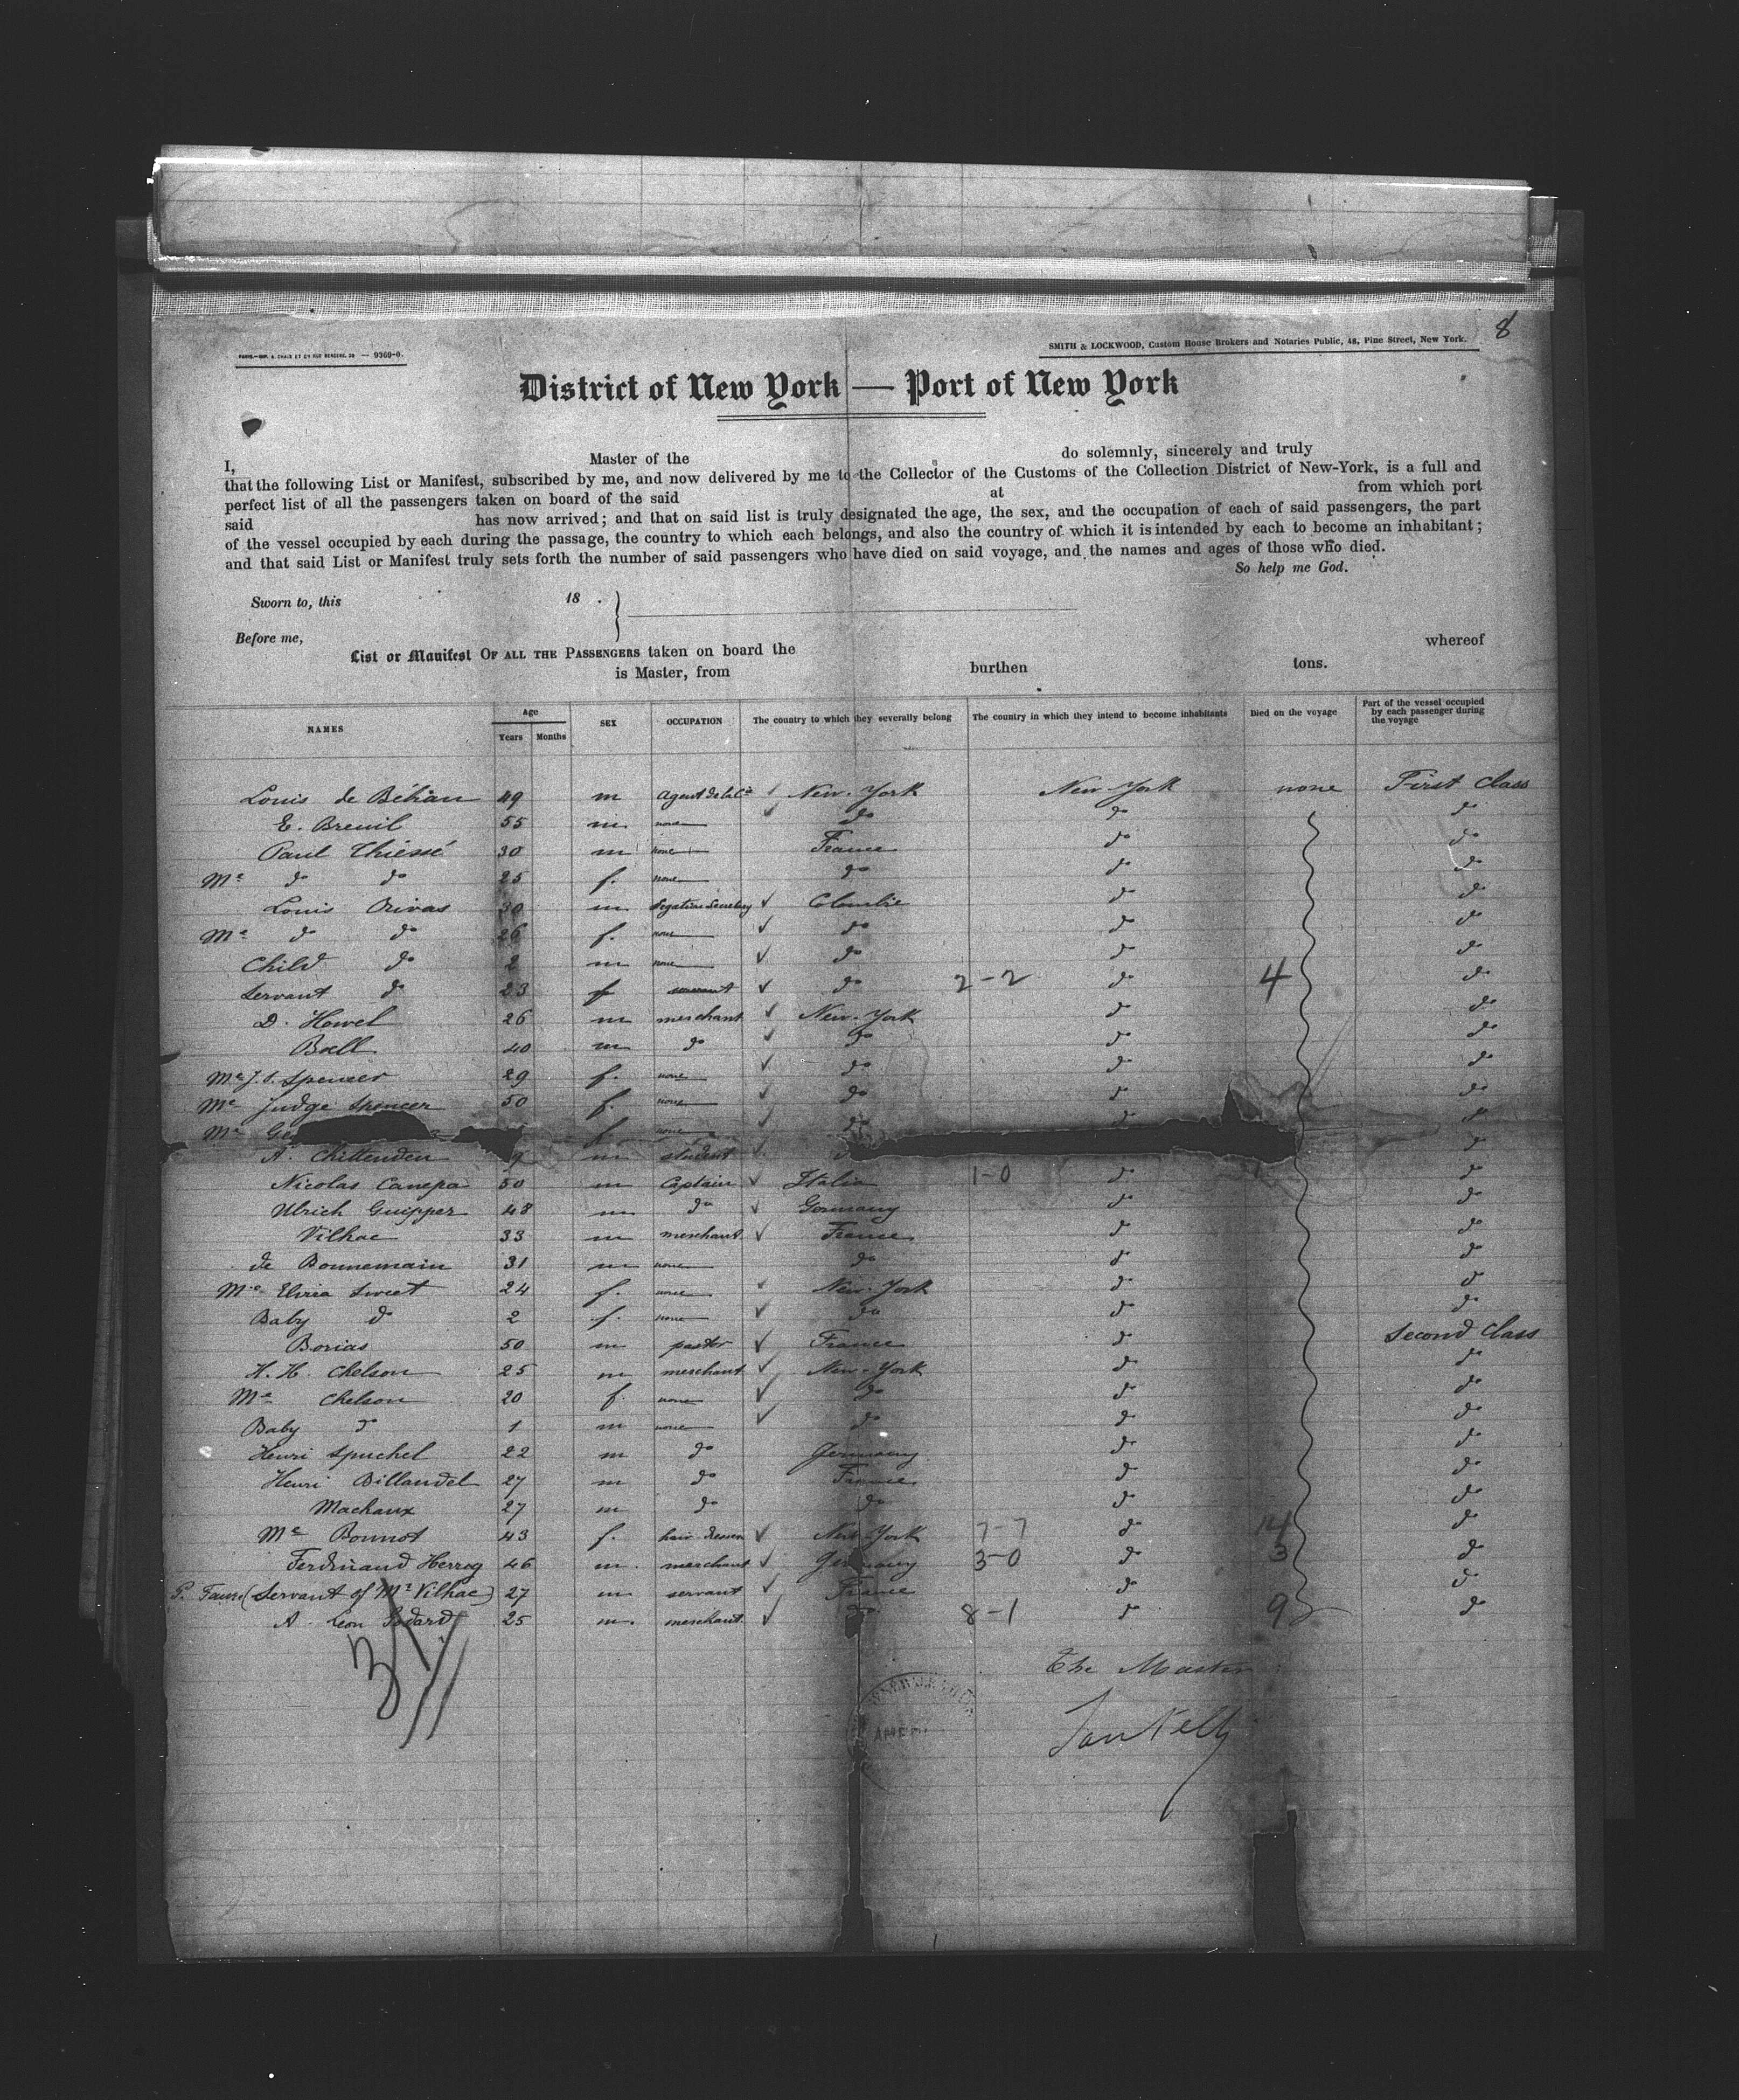 8
PARIS.—IMP. A. CHAIX ET Cie RUE BERGÈRE, 20 — 9369-0.
SMITH & LOCKWOOD, Custom House Brokers and Notaries Public, 48, Pine Street, New York.
District of New York — Port of New York
I, Master of the do solemnly, sincerely and truly
that the following List or Manifest, subscribed by me, and now delivered by me to the Collector of the Customs of the Collection District of New-York, is a full and
perfect list of all the passengers taken on board of the said at from which port
said has now arrived; and that on said list is truly designated the age, the sex, and the occupation of each of said passengers, the part
of the vessel occupied by each during the passage, the country to which each belongs, and also the country of which it is intended by each to become an inhabitant;
and that said List or Manifest truly sets forth the number of said passengers who have died on said voyage, and the names and ages of those who died.
So help me God.
Sworn to, this 18 .
Before me,
List or Manifest OF ALL THE PASSENGERS taken on board the whereof
is Master, from burthen tons.
NAMES Age Years Months SEX OCCUPATION The country to which they severally belong The country in which they intend to become inhabitants Died on the voyage Part of the vessel occupied by each passenger during the voyage
Louis de Bébian 49 m Agent de la Cie New-York New York none First Class
E. Breuil 55 m none do do do
Paul Thiessé 30 m none France do do
Me do do 25 f. none do do do
Louis Orivas 30 m Legation Secretary Colombie do do
Me do do 26 f. none do do do
Child do 2 m none do do do
Servant do 23 f servant do 2-2 do 4 do
D. Howel 26 m merchant New-York do do
Ball 40 m do do do do
Me J. S. Spencer 29 f. none do do do
Me Judge Spencer 50 f. none do do do
Me Ge f none do do do
A. Chittenden 9 m student do do
Nicolas Canepa 50 m Captain Italia 1-0 do 1 do
Ulrich Guipper 48 m do Germany do do
Vilhac 33 m merchant France do do
de Bonnemain 31 m none do do do
Me Elvira Sweet 24 f. none New-York do do
Baby do 2 f. none do do do
Borias 50 m pastor France do Second Class
H. H. Chelson 25 m merchant New-York do do
Me Chelson 20 f. none do do do
Baby do 1 m none do do do
Henri Spuchel 22 m do Germany do do
Henri Billaudel 27 m do France do do
Machaux 27 m do do do do
Me Bonnot 43 f. hair dresser New York 7-7 do 14 do
Ferdinand Herzog 46 m. merchant Germany 3-0 do 3 do
P. Faure (Servant of Mr Vilhac) 27 m servant France do do
A. Léon Godard 25 m. merchant do 8-1 do 9 do
31
The Master